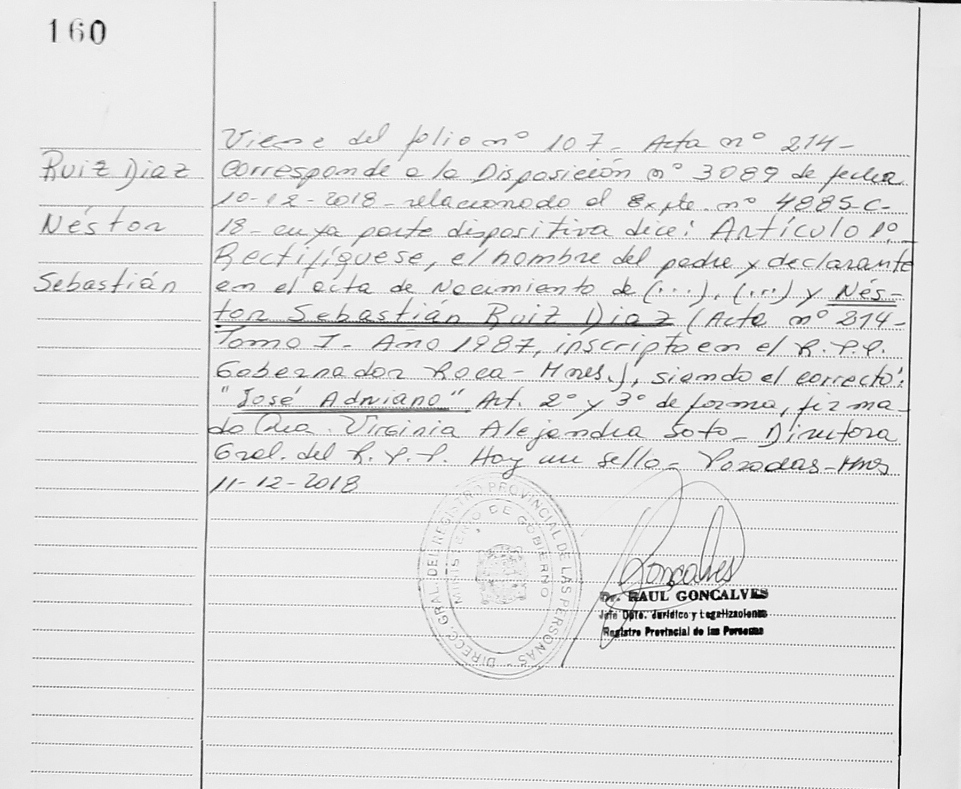 160
Ruiz Diaz
Néston
Sebastián
Viene del folio nº 107- Acta nº 214-
corresponde a la Disposición nº 3089 de fecha
10-12-2018- relacionado al Expte. nº 4885-C-
18- cuya parte dispositiva dice: Artículo 1º-
Rectifíquese, el nombre del padre y declarante
en el acta de Nacimiento de (...), (...) y Nés-
tor Sebastián Ruiz Diaz (Acta nº 214-
Tomo I- Año 1987, inscripto en el R.P.P.
Gobernador Roca- Mnes.), siendo el correcto:
"José Adriano" Art. 2º y 3º de forma, firma-
do Dra. Virginia Alejandra Soto- Directora
Gral. del R.P.P. Hay un sello- Posadas-Mnes
11-12-2018
DIREC. GRAL. DEL REGISTRO PROVINCIAL DE LAS PERSONAS
MINISTERIO DE GOBIERNO
Goncalves
Dr. RAUL GONCALVES
Jefe Dpto. Jurídico y Legalizaciones
Registro Provincial de las Personas